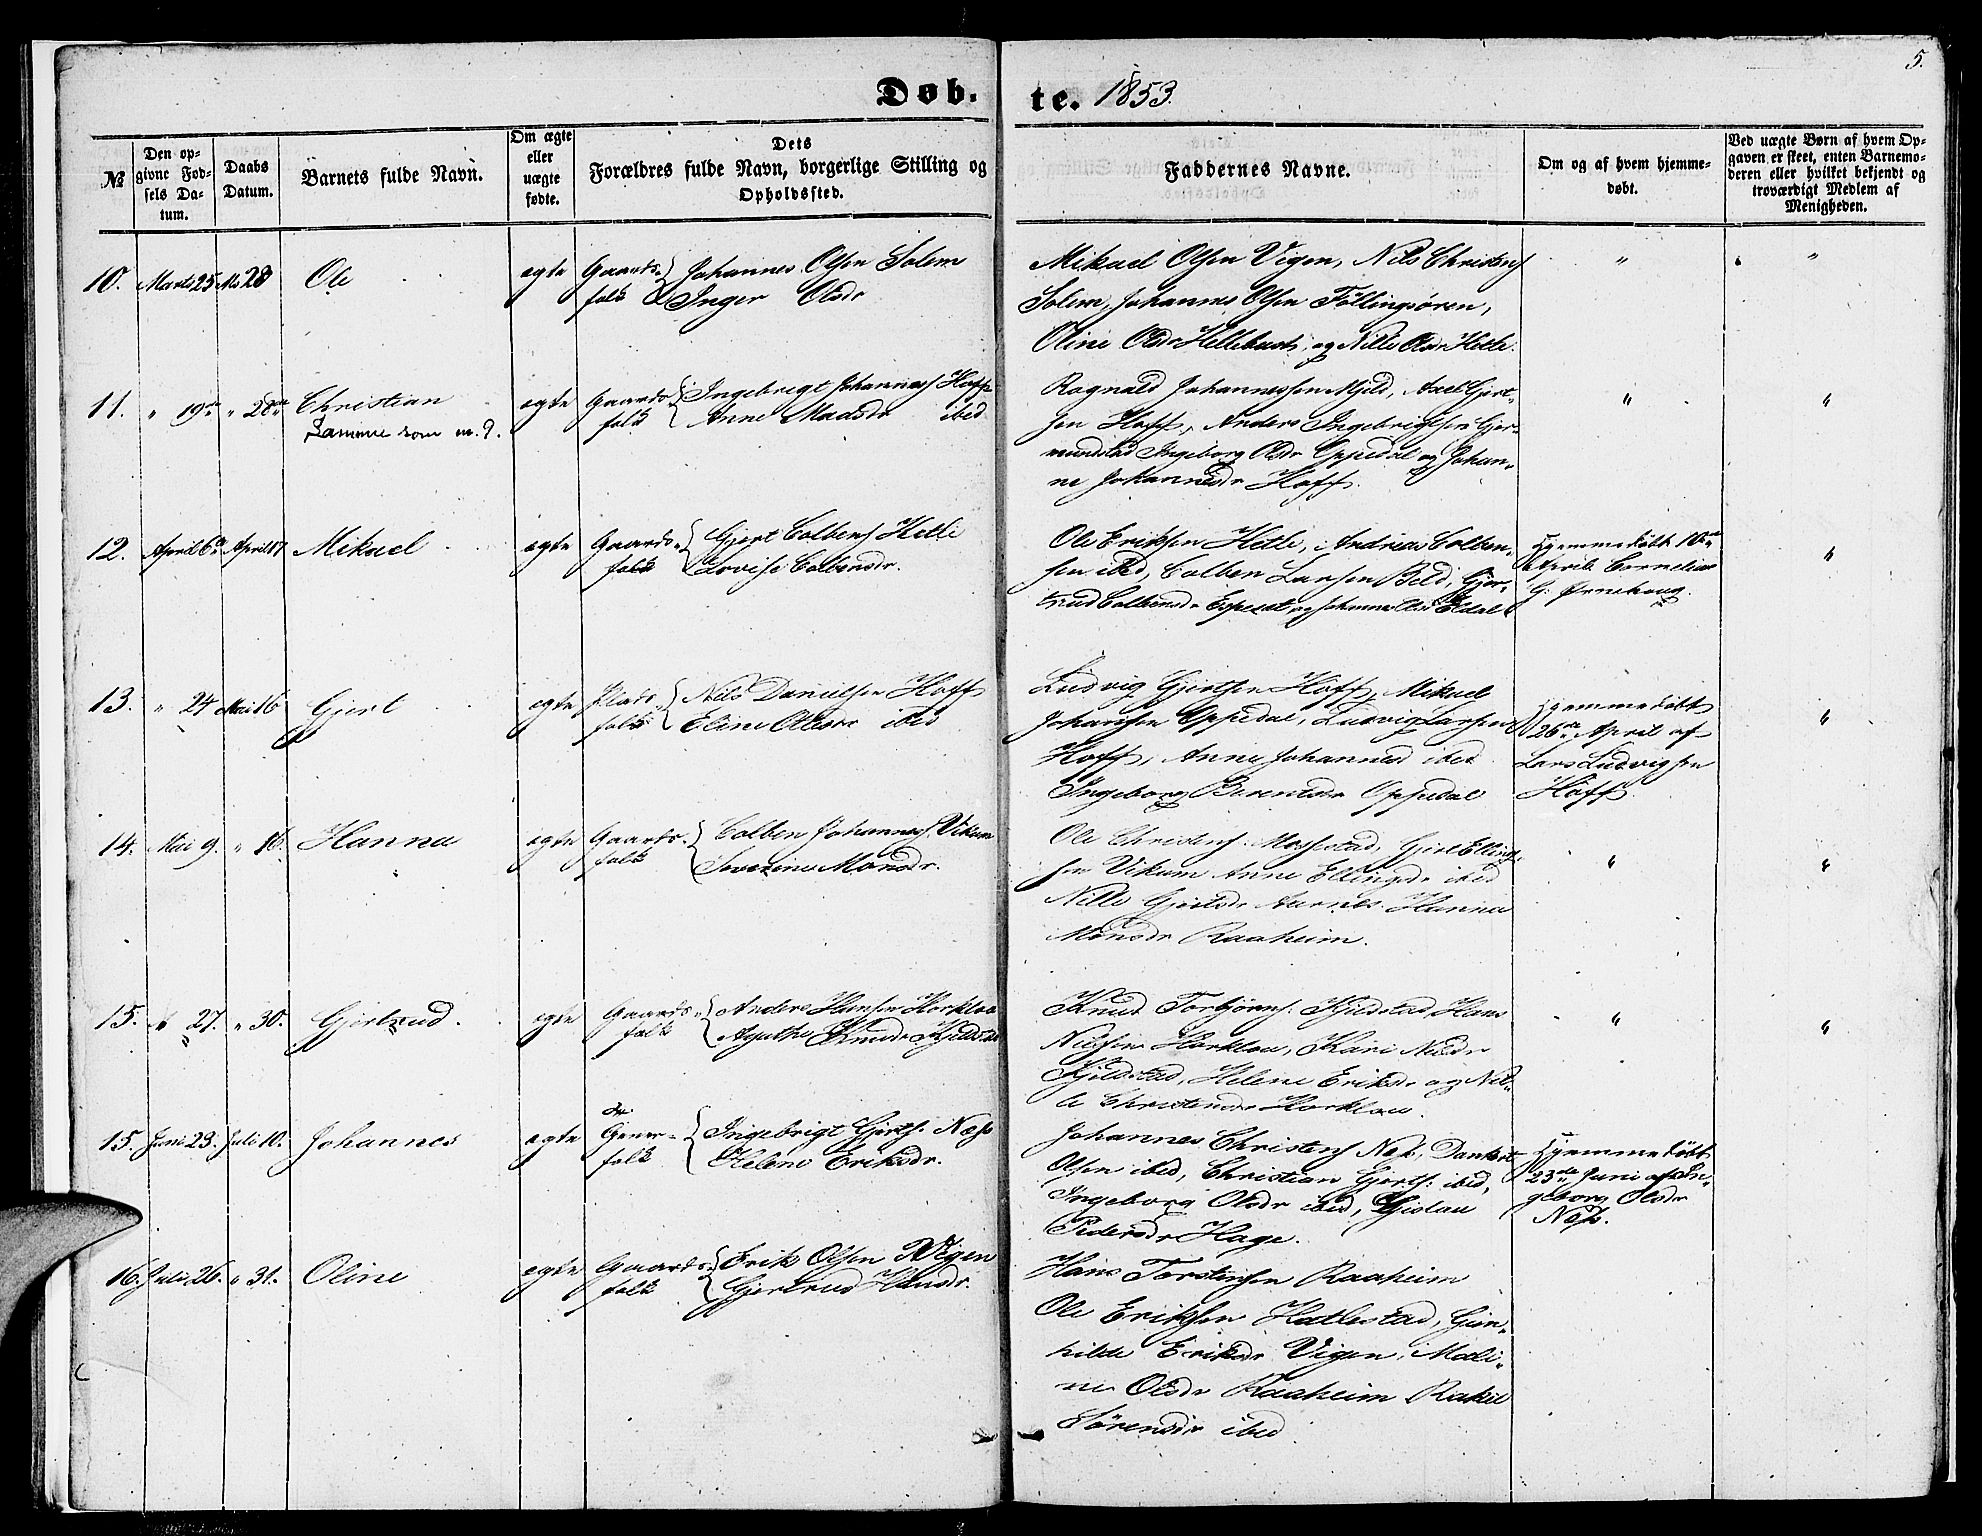 5.
Døb. te. 1853.
№
Den opgivne Fødsels Datum.
Daabs Datum.
Barnets fulde Navn.
Om ægte eller uægte fødte.
Dets Forældres fulde Navn, borgerlige Stilling og Opholdssted.
Faddernes Navne.
Om og af hvem hjemmedøbt.
Ved uægte Børn af hvem Opgaven er skeet, enten Barnemoderen eller hvilket bekjendt og troværdigt Medlem af Menigheden.
10. Marts 25 Ms 28 Ole ægte Gaards-folk { Johannes Olsen Solem
Inger Olsdr
Mikael Olsen Vigen, Nils Christens
Solem, Johannes Olsen Föllingsören,
Oline Olsdr Hellebust, og Nille Olsdr Hetle.
" "
11. " 19de " 28de Christian
Samme som nr. 9.
ægte Gaards-folk { Ingebrigt Johanness Hoff
Anne Madsdr ibid
Rognald Johannessen Mjeld, Axel Gjert-
sen Hoff, Anders Ingebrigtsen Gjer-
mundstad Ingeborg Olsdr Oppedal og Johan-
ne Johannesdr Hoff.
" "
12. April 6te April 17 Mikael ægte Gaards-folk { Gjert Colbens Hetle
Lovise Colbensdr.
Ole Eriksen Hetle, Andreas Colben-
sen ibid, Colben Larsen Beld, Gjer-
trud Colbensdr Espeset og Johanne Olsdr Eldal
Hjemmedöbt 10de
April Cornelius
G. Ørnehoug.
"
13. " 24 Mai 16 Gjert ægte Plads-folk { Nils Danielsen Hoff
Eline Olsdr ibid
Ludvig Gjertsen Hoff, Mikael
Johansen Oppedal, Ludvig Larsen
Hoff, Anne Johannesd ibid
Ingeborg Berentsdr Oppedal
Hjemmedöbt
26de April af
Lars Ludvigsen
Hoff.
"
14. Mai 9. " 16. Hanna ægte Gaards-folk { Colben Johanness. Vikum
Severine Monsdr.
Ole Christens. Massestad, Gjert Elling-
sen Vikum Anne Ellingsdr ibid
Nille Gjertsdr Aarnes. Hanna
Monsdr Raaheim.
" "
15. " 27. " 30. Gjertrud. ægte Gaards-folk { Anders Hansen Horklau
Agathe Knudsdr Kjelstad
Knud Torbjörns. Kjelstad, Hans
Nilssen Horklau, Kari Nilsdr
Kjelstad, Helene Eriksdr og Nil-
le Christensdr Horklau.
" "
15. Juni 23. Juli 10. Johannes ægte Gaver-folk { Ingebrigt Gjerts. Næss
Helene Eriksdr.
Johannes Christens Næss, Dankert
Olsen ibid, Christian Gjerts. ibid,
Ingeborg Olsdr ibid, Gislau
Pedersdr Hage.
Hjemmedöbt
23de Juni af In-
geborg Olsdr
Næss.
16. Juli 26. " 31. Oline ægte Gaards-folk { Erik Olsen Vigen
Gjertrud Hansdr.
Hans Torstensen Raaheim
Ole Eriksen Hatlestad, Gun-
hilde Eriksdr Vigen, Mali-
ne Olsdr Raaheim Rakel
Sörensdr ibid.